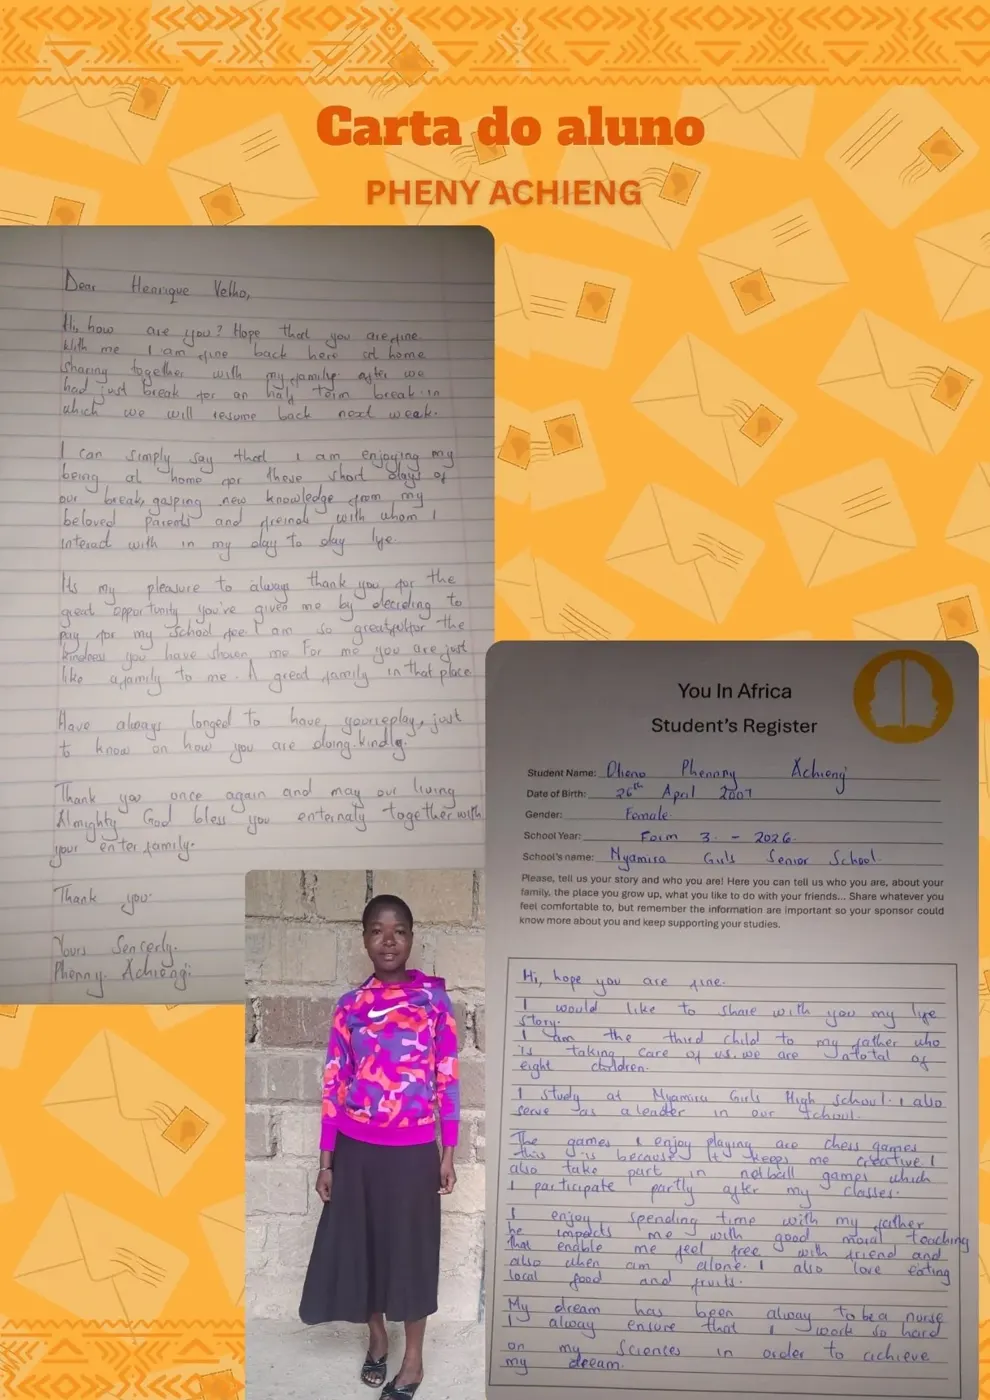 Carta do aluno
PHENY ACHIENG
Dear Henrique Velho,
Hi, how are you? Hope that you are fine.
With me I am fine back here at home
sharing together with my family after we
had just break for an half term break in
which we will resume back next weak.
I can simply say that I am enjoying my
being at home for these short days of
our break, gasping new knowledge from my
beloved parents and freinds with whom I
interact with in my day to day life.
Its my pleasure to always thank you for the
great opportunity you've given me by deciding to
pay for my school fee I am so greatfulfor the
kindness you have shown me For me you are just
like a family to me. A great family in that place.
Have always longed to have yourreplay, just
to know on how you are doing kindly.
Thank you once again and may our living
Almighty God bless you enternaty together with
your enter family.
Thank you.
Yours Sencerly.
Phenny Achieng.
You In Africa
Student's Register
Student Name: Oheno Phennny Achieng
Date of Birth: 26th April 2007
Gender: Female.
School Year: Form 3 - 2026.
School's name: Nyamira Girls Senior School.
Please, tell us your story and who you are! Here you can tell us who you are, about your
family, the place you grow up, what you like to do with your friends... Share whatever you
feel comfortable to, but remember the information are important so your sponsor could
know more about you and keep supporting your studies.
Hi, hope you are fine.
I would like to share with you my lyfe
story.
I am the third child to my father who
is taking care of us. we are atotal of
eight children.
I study at Nyamira Girls High school. I also
serve as a leader in our school.
The games I enjoy playing are chess games
this is because it keeps me creative I
also take part in netball games which
I participate partly after my classes.
I enjoy spending time with my father
he impacts me with good moral teaching
that enable me feel free with friend and
also when am alone. I also love eating
local food and fruits.
My dream has been alway to be a nurse
I alway ensure that I work so hard
on my Sciences in order to achieve
my dream.